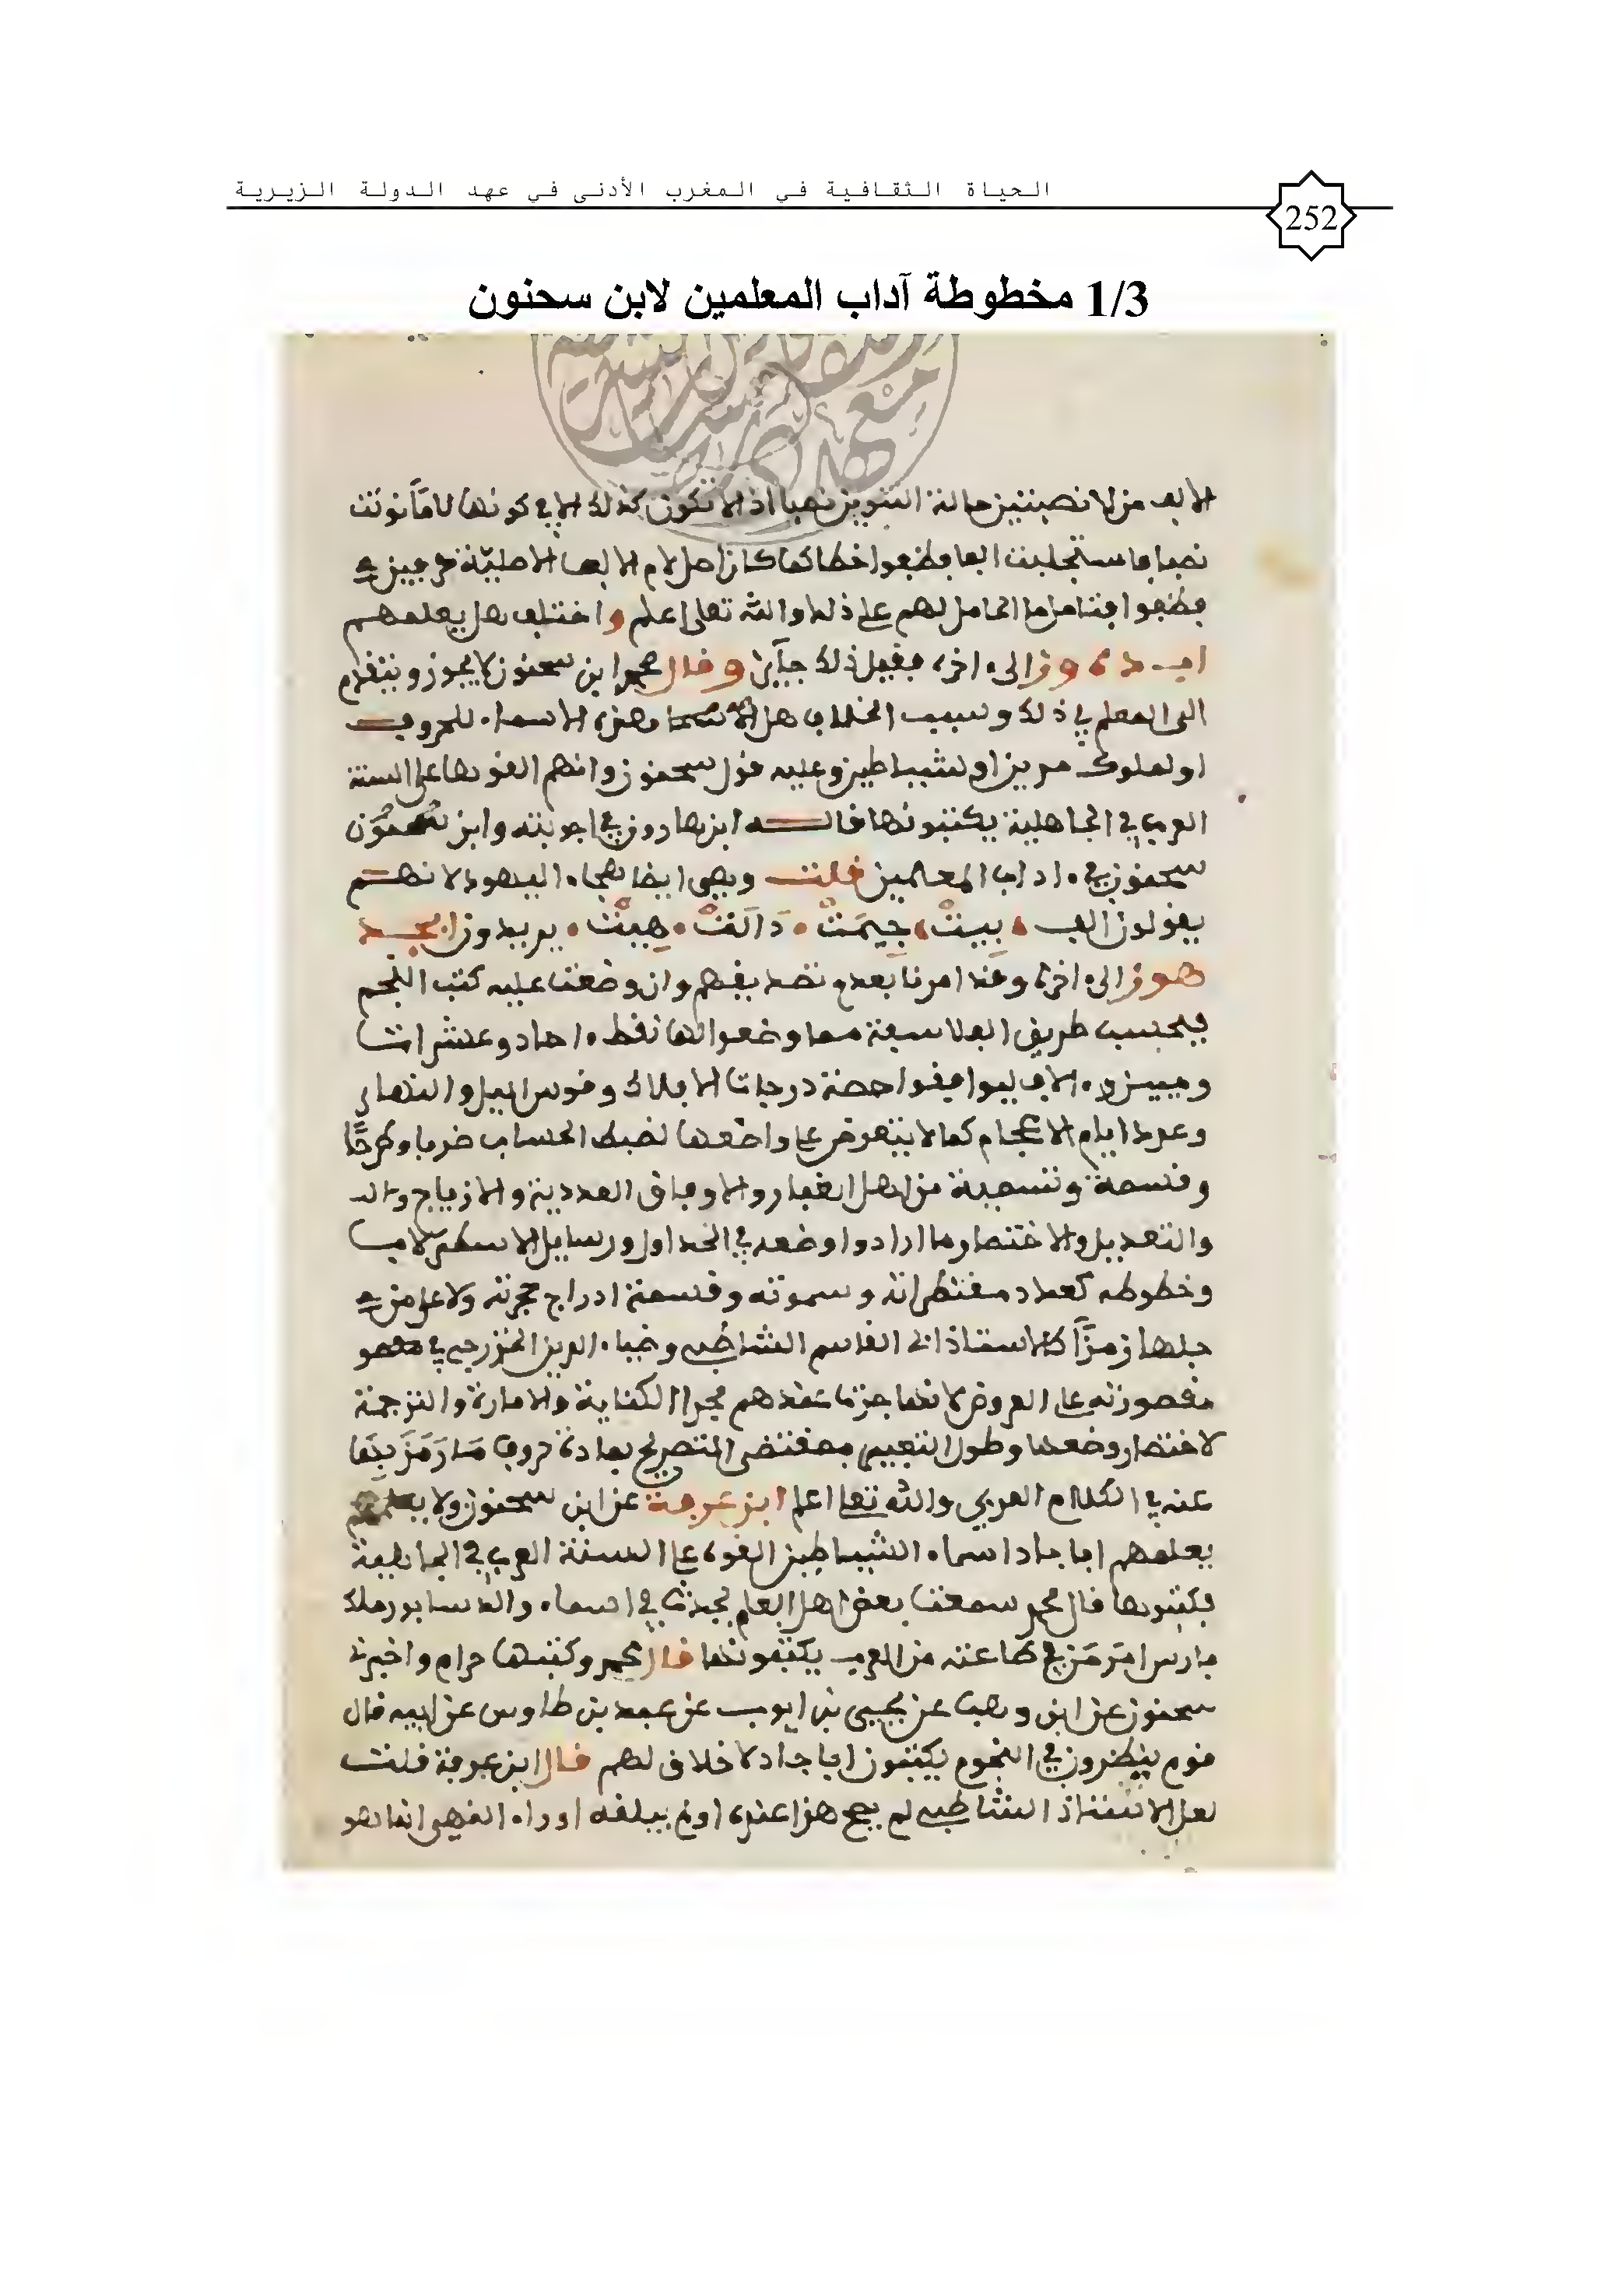 الحياة الثقافية في المغرب الأدنى في عهد الدولة الزيرية
252
1/3 مخطوطة آداب المعلمين لابن سحنون
الالف من لا تصبنيز حالة التنويز نصبا اذ لا تكون كذلك الا في كونها
نصبا فاستجلبت الفا فطبعوا خطا
فتامل ما الحامل لهم على ذلك والله تعلى اعلم واختلف هل يعلمهم
الى ءاخره فقيل ذلك جائز وقال محمد ابن سحنون لا يجوز ويتقدم
الى المعلم في ذلك وسبب الخلاف هل هذه الاسماء للحروف
او لملوك مدين او لشياطين وعليه قول سحنون وانهم القوها على السنة
العرب في الجاهلية يكتبونها قاله ابن هارون في اجوبته وابن
سحنون في ءاداب المعلمين قلت وهي ايضا هجاء اليهود لانهم
يقولون الف بيت جيمت دالت هيت يريدون ابجد
هوز الى ءاخره وقد امرنا بعدم تصديقهم وان وضعت عليه كتب النجم
فبحسب طريق الفلاسفة مما وضعوا لها نقط ءاحاد وعشرات
وميين وءالاف ليوافقوا حصة درجات الافلاك وقوس الليل والنهار
وعدد ايام الاعجام كما لا يتعرض على واضعها لضبط الحساب ضربا وطرحا
وقسمة وتسمية من اهل الغبار والاوفاق العددية والازياج
والتعديل والاختصار ما ارادوا وضعه في الجداول ورسايل الاسطرلاب
وخطوطه كعدد مقنطراته وسموته وقسمة ادراج حجرته ولا على من
جلها رمزا كالاستاذ ابي القاسم الشاطبي وضياء الدين الخزرجي في
مقصورته على العروض لانها جرت عندهم مجرا الكناية والامارة والترجمة
لاختصار وضعها وطول التعبير بمقتضى التصريح بمادة حروف ما رمز بها
عنه في الكلام العربي والله تعلى اعلم ابن عرفة عن ابن سحنون ولا
يعلمهم ابا جاد اسماء الشياطين القوه على السنة العرب في الجاهلية
فكتبوها قال محمد سمعت بعض اهل العلم يحدث في اسماء ولد سابور ملك
فارس امر من في طاعته من العرب يكتبونها قال محمد وكتبها حرام واخبرني
سحنون عن ابن وهب عن يحيى بن ايوب عن عبد بن طاوس عن ابيه قال
قوم ينظرون في النجوم يكتبون ابا جاد لا خلاق لهم قال ابن عرفة قلت
لعل الاستاذ الشاطبي لم يصح هذا عنده او لم يبلغه او راء النهي انما هو